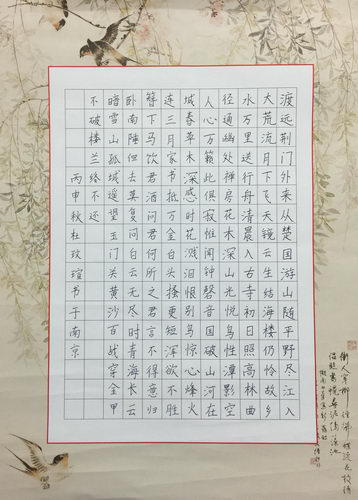 渡远荆门外来从楚国游山随平野尽江入
大荒流月下飞天镜云生结海楼仍怜故乡
水万里送行舟清晨入古寺初日照高林曲
径通幽处禅房花木深山光悦鸟性潭影空
人心万籁此俱寂惟闻钟磬音国破山河在
城春草木深感时花溅泪恨别鸟惊心烽火
连三月家书抵万金白头搔更短浑欲不胜
簪下马饮君酒问君何所之君言不得意归
卧南陲但去莫复问白云无尽时青海长云
暗雪山孤城遥望玉门关黄沙百战穿金甲
不破楼兰终不还
丙申秋杜玫瑄书于南京